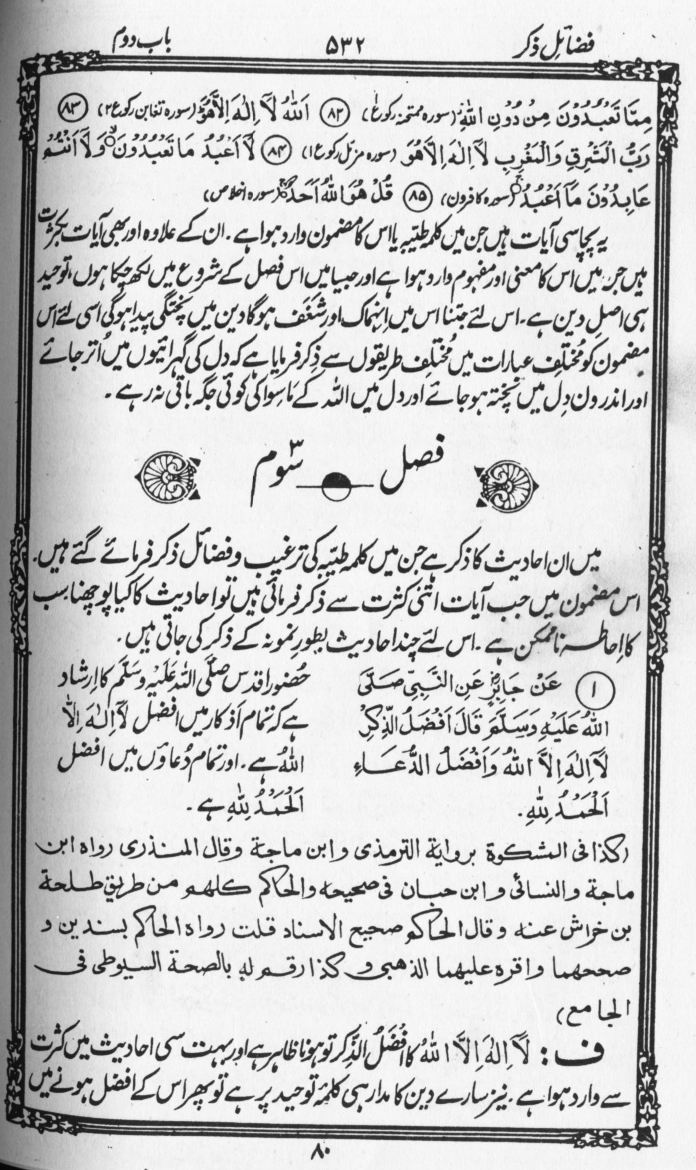 فضائل ذکر
۵۳۲
باب دوم
مِمَّا تَعْبُدُوْنَ مِنْ دُوْنِ اللّٰهِ (سورہ ممتحنہ رکوع۱) (۸۲) اَللّٰهُ لَآ اِلٰهَ اِلَّا هُوَ (سورہ تغابن رکوع۲) (۸۳)
رَبُّ الْمَشْرِقِ وَالْمَغْرِبِ لَآ اِلٰهَ اِلَّا هُوَ (سورہ مزمل رکوع۱) (۸۴) لَآ اَعْبُدُ مَا تَعْبُدُوْنَ وَلَآ اَنْتُمْ
عَابِدُوْنَ مَآ اَعْبُدُ (سورہ کافرون) (۸۵) قُلْ هُوَ اللّٰهُ اَحَدٌ (سورہ اخلاص)
یہ پچاسی آیات ہیں جن میں کلمہ طیبہ یا اس کا مضمون وارد ہوا ہے۔ ان کے علاوہ اور بھی آیات بکثرت
ہیں جن میں اس کا معنی اور مفہوم وارد ہوا ہے اور جیسا میں اس فصل کے شروع میں لکھ چکا ہوں، توحید
ہی اصل دین ہے۔ اس لئے جتنا اس میں انہماک اور شغف ہوگا دین میں پختگی پیدا ہوگی اسی لئے اس
مضمون کو مختلف عبارات میں مختلف طریقوں سے ذکر فرمایا ہے کہ دل کی گہرائیوں میں اُتر جائے
اور اندرون دل میں پختہ ہو جائے اور دل میں اللہ کے ماسوا کی کوئی جگہ باقی نہ رہے۔
فصل سوم
میں ان احادیث کا ذکر ہے جن میں کلمہ طیبہ کی ترغیب و فضائل ذکر فرمائے گئے ہیں۔
اس مضمون میں جب آیات اتنی کثرت سے ذکر فرمائی ہیں تو احادیث کا کیا پوچھنا سب
کا احاطہ ناممکن ہے۔ اس لئے چند احادیث بطور نمونہ کے ذکر کی جاتی ہیں۔
(۱) عَنْ جَابِرٍ عَنِ النَّبِيِّ صَلَّى
اللهُ عَلَيْهِ وَسَلَّمَ قَالَ اَفْضَلُ الذِّكْرِ
لَآ اِلٰهَ اِلَّا اللهُ وَاَفْضَلُ الدُّعَاءِ
اَلْحَمْدُ لِلّٰهِ.
حضور اقدس صلی اللہ علیہ وسلم کا ارشاد
ہے کہ تمام اذکار میں افضل لَآ اِلٰهَ اِلَّا
اللهُ ہے۔ اور تمام دُعاؤں میں افضل
اَلْحَمْدُ لِلّٰهِ ہے۔
(كذا فى المشكوة برواية الترمذى وابن ماجة وقال المنذرى رواه ابن
ماجة والنسائى وابن حبان فى صحيحه والحاكم كلهم من طريق طلحة
بن خراش عنه وقال الحاكم صحيح الاسناد قلت رواه الحاكم بسندين و
صححهما واقره عليهما الذهبى وكذا رقم له بالصحة السيوطى فى
الجامع)
ف: لَآ اِلٰهَ اِلَّا اللهُ کا افضل الذکر تو ہونا ظاہر ہے اور بہت سی احادیث میں کثرت
سے وارد ہوا ہے۔ نیز سارے دین کا مدار ہی کلمۂ توحید پر ہے تو پھر اس کے افضل ہونے میں
۸۰